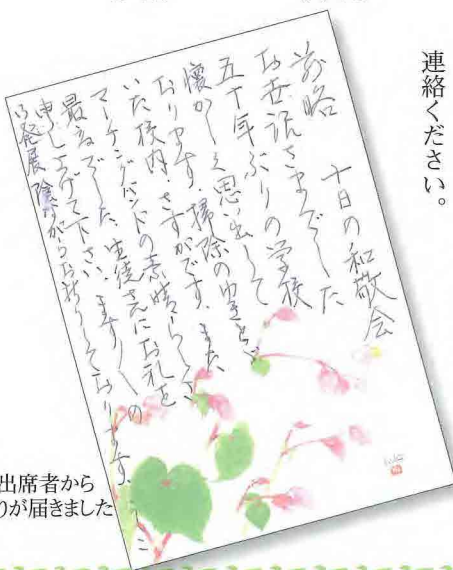 連絡ください。
前略 十日の和敬会
お世話さまでした
五十年ぶりの学校
懐かしく思い出して
おります。掃除のゆきとど
いた校内、さすがです。また
マーチングバンドの素晴らしさ
最高でした。生徒さんにお礼を
申し上げて下さい。ますますの
ご発展陰ながらお祈りしております。
出席者から
りが届きました